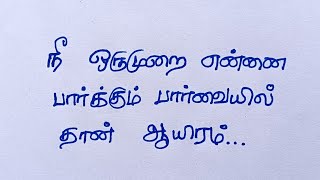 நீ ஒருமுறை என்னை
பார்க்கும் பார்வையில்
தான் ஆயிரம்...